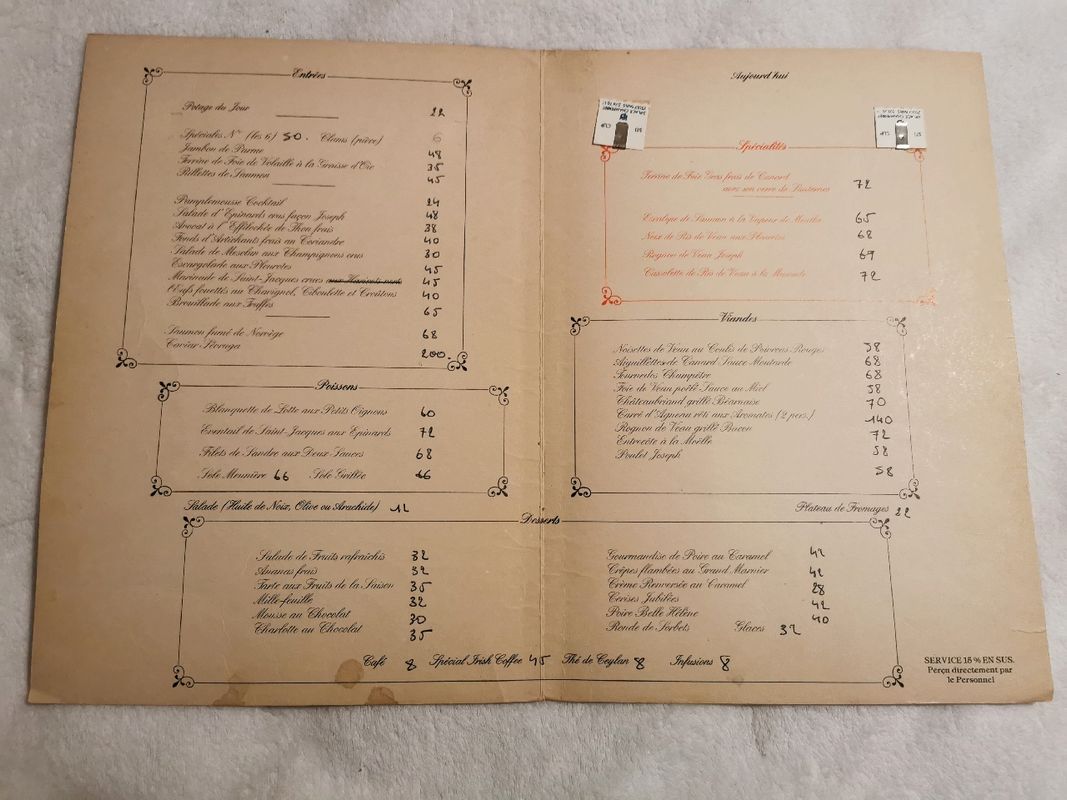 Entrées
Potage du Jour 22
Spéciales N° (les 6) 50. Clams (pièce) 6
Jambon de Parme 48
Terrine de Foie de Volaille à la Graisse d'Oie 35
Rillettes de Saumon 45
Pamplemousse Cocktail 24
Salade d'Epinards crus façon Joseph 48
Avocat à l'Effilochée de Thon frais 38
Fonds d'Artichauts frais au Coriandre 40
Salade de Mesclun aux Champignons crus 30
Escargolade aux Pleurotes 45
Marinade de Saint-Jacques crues aux Haricots verts 45
Œufs fouettés au Chavignol, Ciboulette et Croûtons 40
Brouillade aux Truffes 65
Saumon fumé de Norvège 68
Caviar Sévruga 200.
Poissons
Blanquette de Lotte aux Petits Oignons 60
Eventail de Saint-Jacques aux Epinards 72
Filets de Sandre aux Deux Sauces 68
Sole Meunière 66 Sole Grillée 66
Salade (Huile de Noix, Olive ou Arachide) 12
Aujourd'hui
Spécialités
Terrine de Foie Gras frais de Canard
avec son verre de Sauternes 72
Escalope de Saumon à la Vapeur de Menthe 65
Noix de Ris de Veau aux Pleurotes 68
Rognon de Veau Joseph 69
Cassolette de Ris de Veau à la 72
Viandes
Noisettes de Veau au Coulis de Poivrons Rouges 58
Aiguillettes de Canard Sauce Moutarde 68
Tournedos Champêtre 68
Foie de Veau poêlé Sauce au Miel 58
Châteaubriand grillé Béarnaise 70
Carré d'Agneau rôti aux Aromates (2 pers.) 140
Rognon de Veau grillé Bacon 72
Entrecôte à la Moëlle 58
Poulet Joseph 58
Plateau de Fromages 22
Desserts
Salade de Fruits rafraîchis 32
Ananas frais 32
Tarte aux Fruits de la Saison 35
Mille-feuille 32
Mousse au Chocolat 30
Charlotte au Chocolat 35
Gourmandise de Poire au Caramel 42
Crêpes flambées au Grand Marnier 42
Crème Renversée au Caramel 28
Cerises Jubilées 42
Poire Belle Hélène 40
Ronde de Sorbets Glaces 32
Café 8 Spécial Irish Coffee 45 Thé de Ceylan 8 Infusions 8
SERVICE 15 % EN SUS.
Perçu directement par
le Personnel